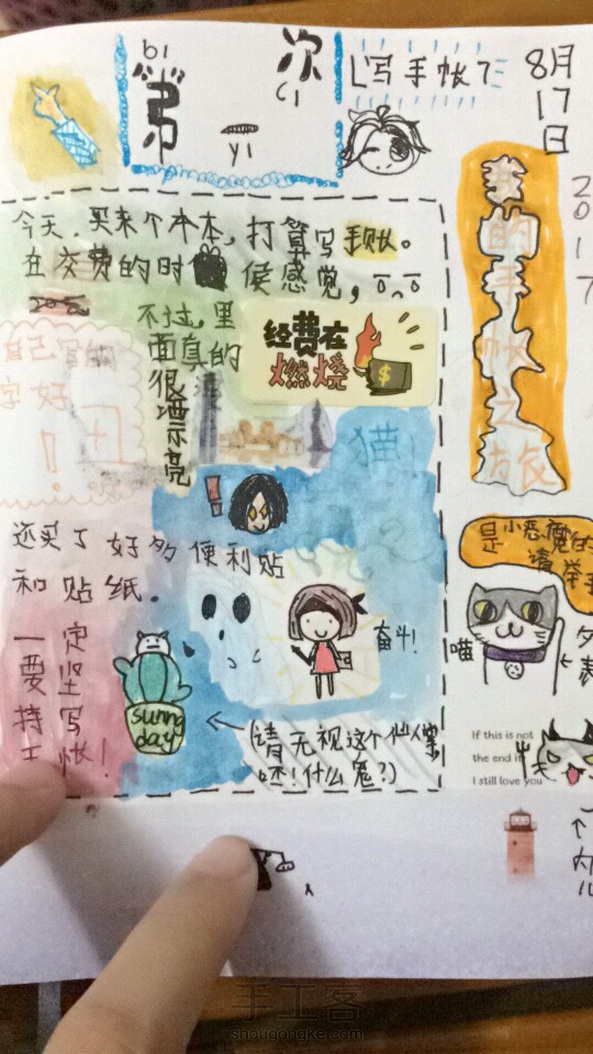 第一次
写手帐了
8月17日
2017
我的手帐之旅
今天，买来个本本，打算写手账。
在交费的时候感觉，
不过，里面真的很漂亮
经费在燃烧
$
自己写的字好
！
猫
还买了好多便利贴和贴纸。
奋斗！
一定要坚持写手帐！
sunny day
(请无视这个仙人掌
呸！什么鬼？)
是小恶魔的请举手
喵
If this is not
the end it
I still love you
手工客
shougongke.com